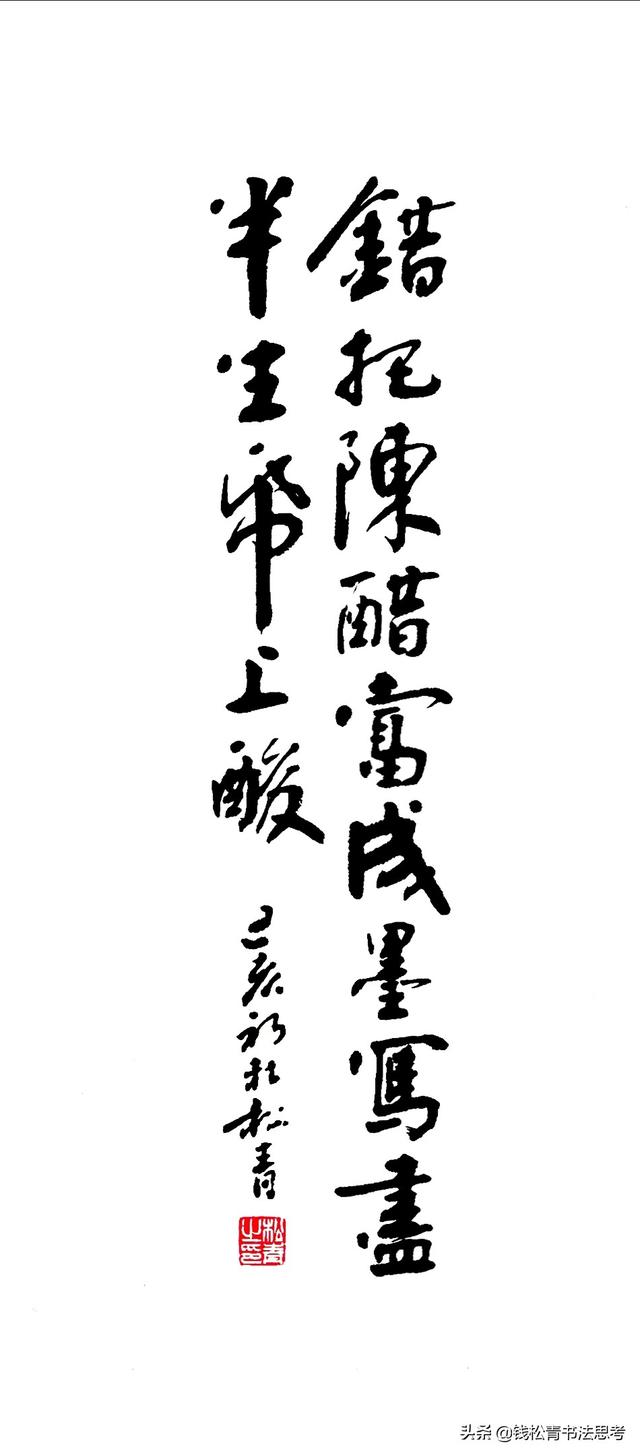 錯把陳醋當成墨寫盡
半生帋上酸
己亥初秋松青
松青之印
头条 @钱松青书法思考